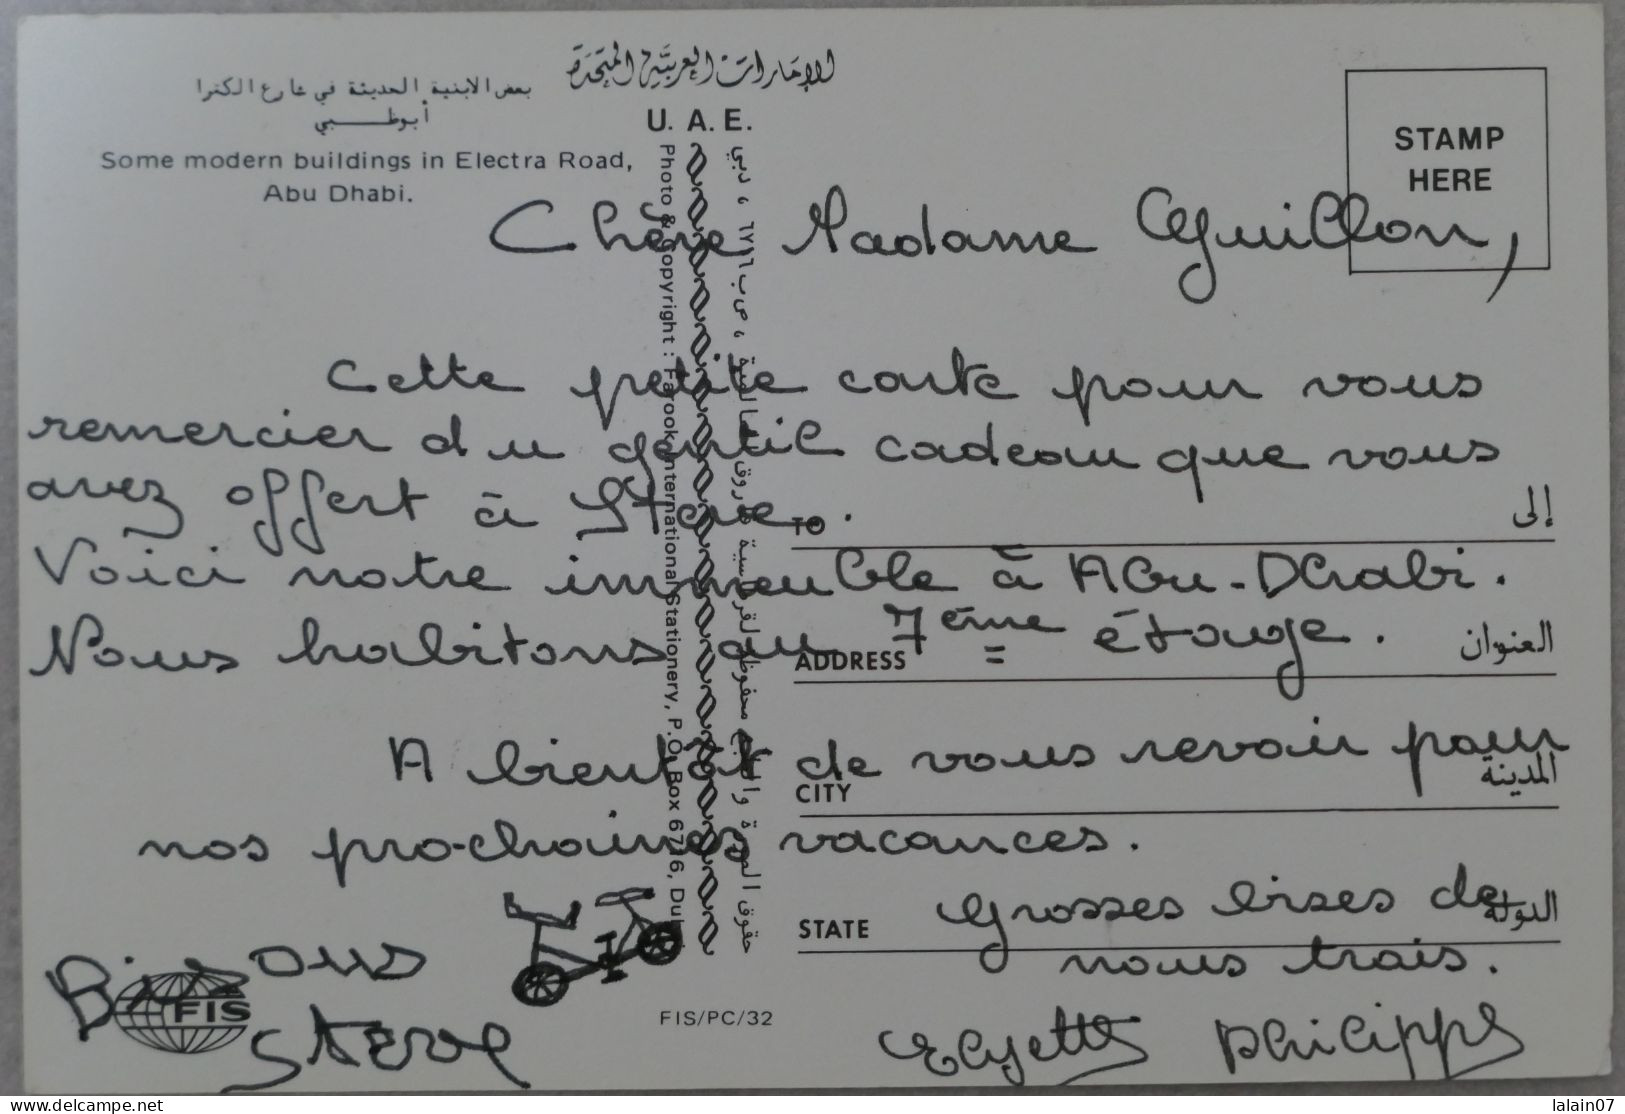 الإمارات العربية المتحدة
U. A. E.
بعض الابنية الحديثة في شارع الكترا
أبوظبي
Some modern buildings in Electra Road,
Abu Dhabi.
STAMP
HERE
Chère Madame Guillon,
Cette petite carte pour vous
remercier du gentil cadeau que vous
avez offert à Steve.
Voici notre immeuble à Abu-Dhabi.
Nous habitons au 7ème étage.
A bientôt de vous revoir pour
nos prochaines vacances.
Grosses bises de
nous trois.
Elyette Philippe
Bisous
Steve
TO إلى
ADDRESS العنوان
CITY المدينة
STATE الدولة
Photo & Copyright : Farook International Stationery, P.O. Box 6716, Dubai
ص ب ٦٧١٦ ، دبي
FIS
FIS/PC/32
www.delcampe.net
lalain07